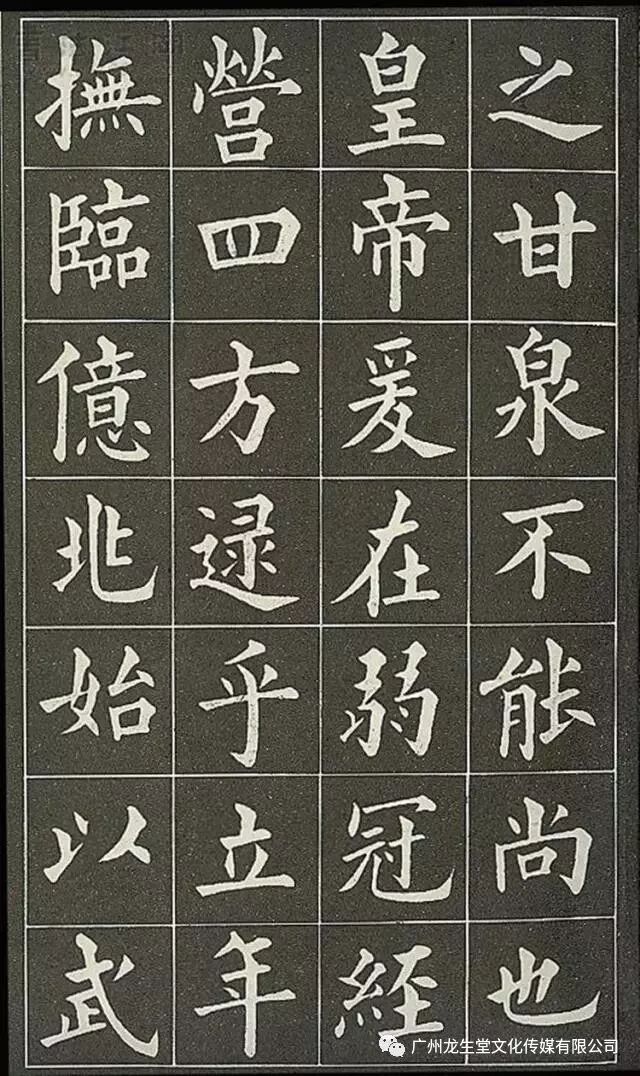 之甘泉不能尚也
皇帝爰在弱冠經
營四方逯乎立年
撫臨億兆始以武
广州龙生堂文化传媒有限公司